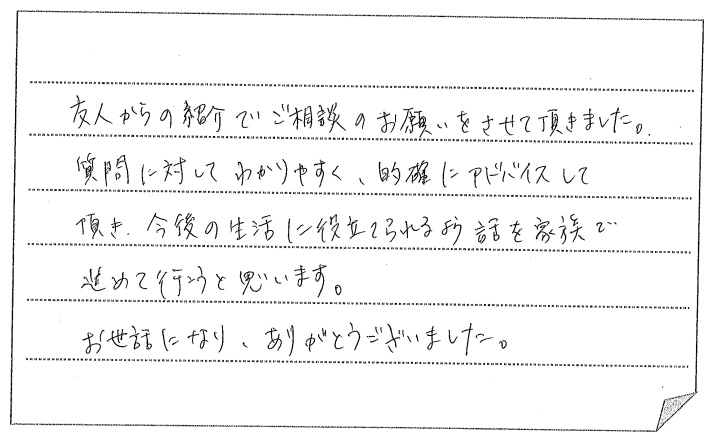 友人からの紹介でご相談のお願いをさせて頂きました。
質問に対してわかりやすく、的確にアドバイスして
頂き、今後の生活に役立てられるよう話を家族で
進めて行こうと思います。
お世話になり、ありがとうございました。